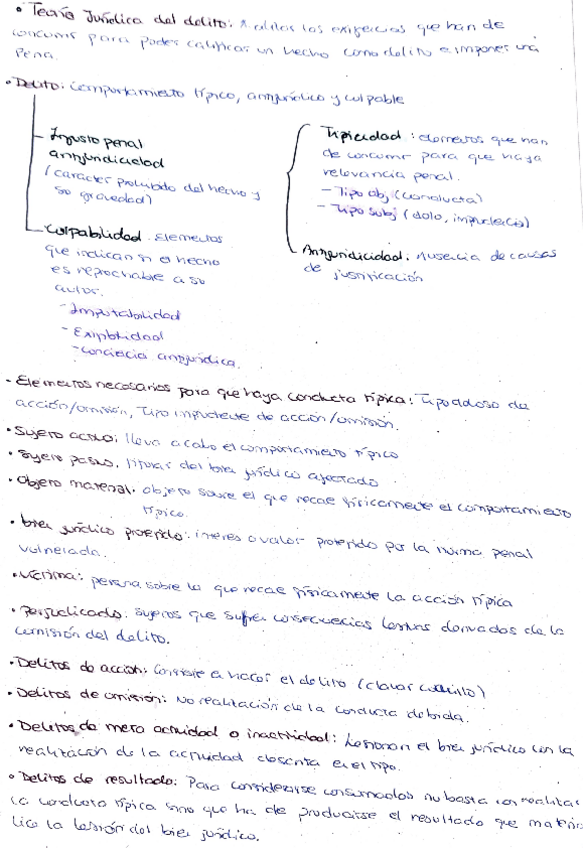 • Teoría Jurídica del delito: Analiza las exigencias que han de
concurrir para poder calificar un hecho como delito e imponer una
pena.
• Delito: Comportamiento típico, antijurídico y culpable
Injusto penal
antijuridicidad
(carácter prohibido del hecho y
su gravedad)
Culpabilidad. Elementos
que indican si el hecho
es reprochable a su
autor.
- Imputabilidad
- Exigibilidad
- Conciencia antijurídica.
Tipicidad: elementos que han
de concurrir para que haya
relevancia penal.
- Tipo obj (conducta)
- Tipo subj (dolo, imprudencia)
Antijuridicidad. Ausencia de causas
de justificación
• Elementos necesarios para que haya conducta típica: Tipo doloso de
acción/omisión, Tipo imprudente de acción/omisión.
• Sujeto activo: lleva a cabo el comportamiento típico
• Sujeto pasivo. titular del bien jurídico afectado
• Objeto material. objeto sobre el que recae físicamente el comportamiento
típico.
• bien jurídico protegido: interes o valor protegido por la norma penal
vulnerada.
• Víctima: persona sobre la que recae físicamente la acción típica
• Perjudicado. sujetos que sufren consecuencias lesivas derivadas de la
comisión del delito.
• Delitos de acción: Consiste en hacer el delito (clavar cuchillo)
• Delitos de omisión: No realización de la conducta debida.
• Delitos de mera actividad o inactividad: Lesionan el bien jurídico con la
realización de la actividad descrita en el tipo.
• Delitos de resultado: Para considerarse consumados no basta con realizar
la conducta típica sino que ha de producirse el resultado que materia
lice la lesión del bien jurídico.